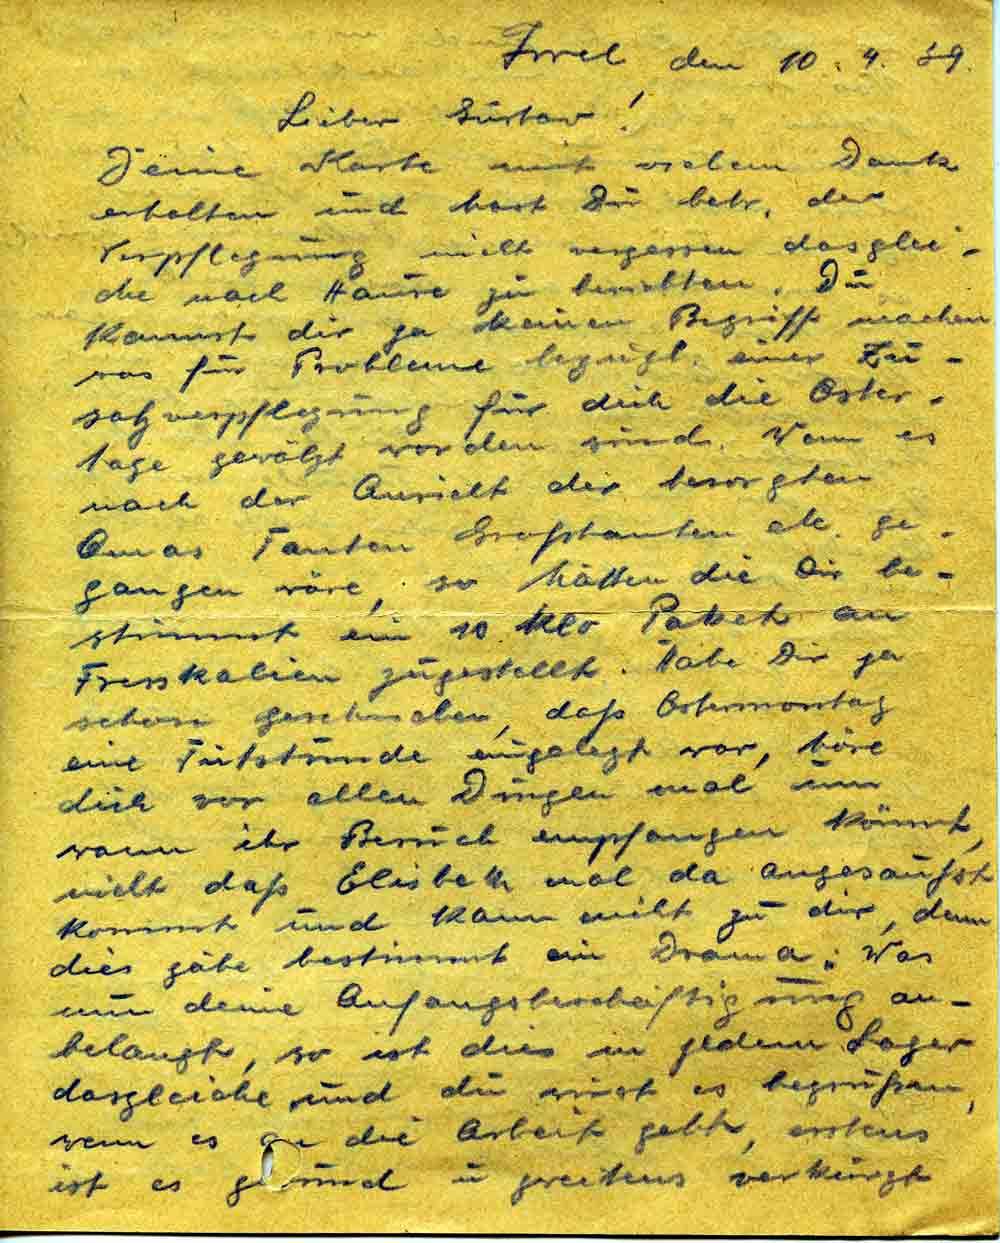 Irrel den 10. 4. 39.
Lieber Gustav!
Deine Karte mit vielem Dank
erhalten und hast Du betr. der
Verpflegung nicht vergessen dasglei-
che nach Hause zu berichten. Du
kannst dir ja keinen Begriff machen
was für Probleme bezügl. einer Zu-
satzverpflegung für dich die Oster-
tage gewälzt worden sind. Wenn es
nach der Ansicht der besorgten
Omas Tanten Großtanten etc. ge-
gangen wäre, so hätten die Dir be-
stimmt ein 10 Klo Paket an
Fresskalien zugestellt. Habe Dir ja
schon geschrieben, daß Ostermontag
eine eingelegt war, höre
dich vor allen Dingen mal um
wann ihr Besuch empfangen könnt,
nicht daß Elisbeth mal da angesaußt
kommt und kann nicht zu dir, denn
dies gäbe bestimmt ein Drama. Was
nun deine Anfangsbeschäftigung an-
belangt, so ist dies in jedem Lager
dasgleiche und du wirst es begrüßen,
wenn es an die Arbeit geht, erstens
ist es gesund u zweitens verkürzt